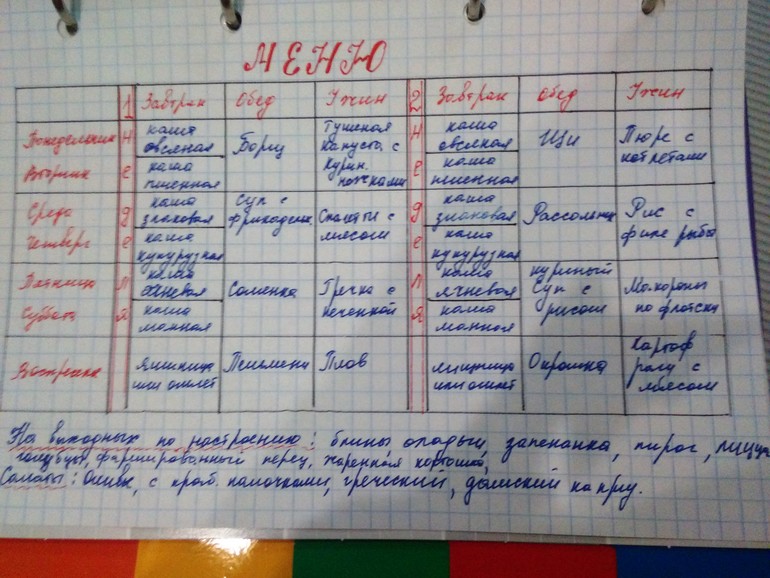 МЕНЮ
1 Завтрак Обед Ужин 2 Завтрак Обед Ужин
Понедельник Н каша овсяная Борщ Тушеная капуста с курин. ножками Н каша овсяная Щи Пюре с котлетами
Вторник е каша пшенная е каша пшенная
Среда д каша злаковая Суп с фрикадельк. Спагетти с мясом д каша злаковая Рассольник Рис с филе рыбы
Четверг е каша кукурузная е каша кукурузная
Пятница Л каша ячневая Солянка Гречка с печенкой Л каша ячневая куриный Суп с рисом Макароны по флотски
Суббота я каша манная я каша манная
Воскресенье яишница или омлет Пельмени Плов яишница или омлет Окрошка Картоф рагу с мясом
На выходных по настроению: блины оладьи, запеканка, пирог, пицца
голубцы, фаршированный перец, жаренная картошка,
Салаты: Оливье, с краб. палочками, греческий, дамский каприз.